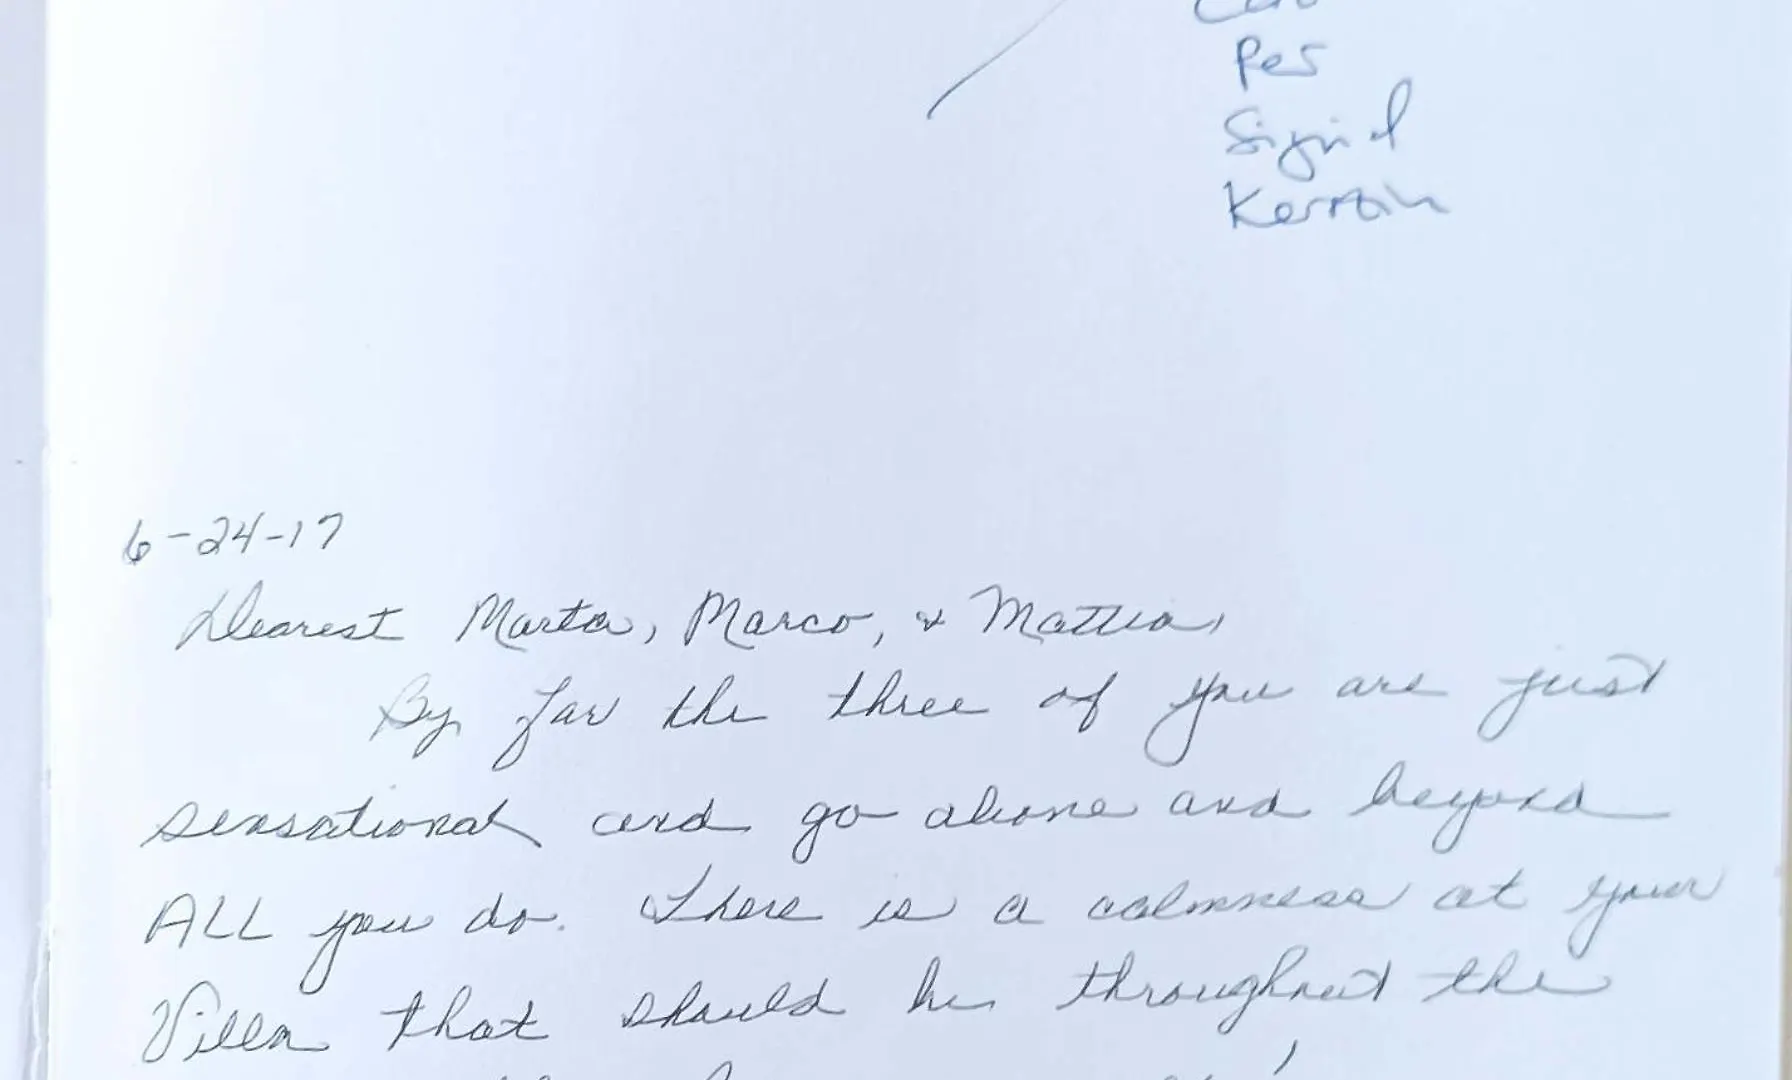 Per
Sigrid
Kerstin
6-24-17
Dearest Marta, Marco, & Mattia,
By far the three of you are just
sensational and go above and beyond
ALL you do. There is a calmness at your
Villa that should be throughout the